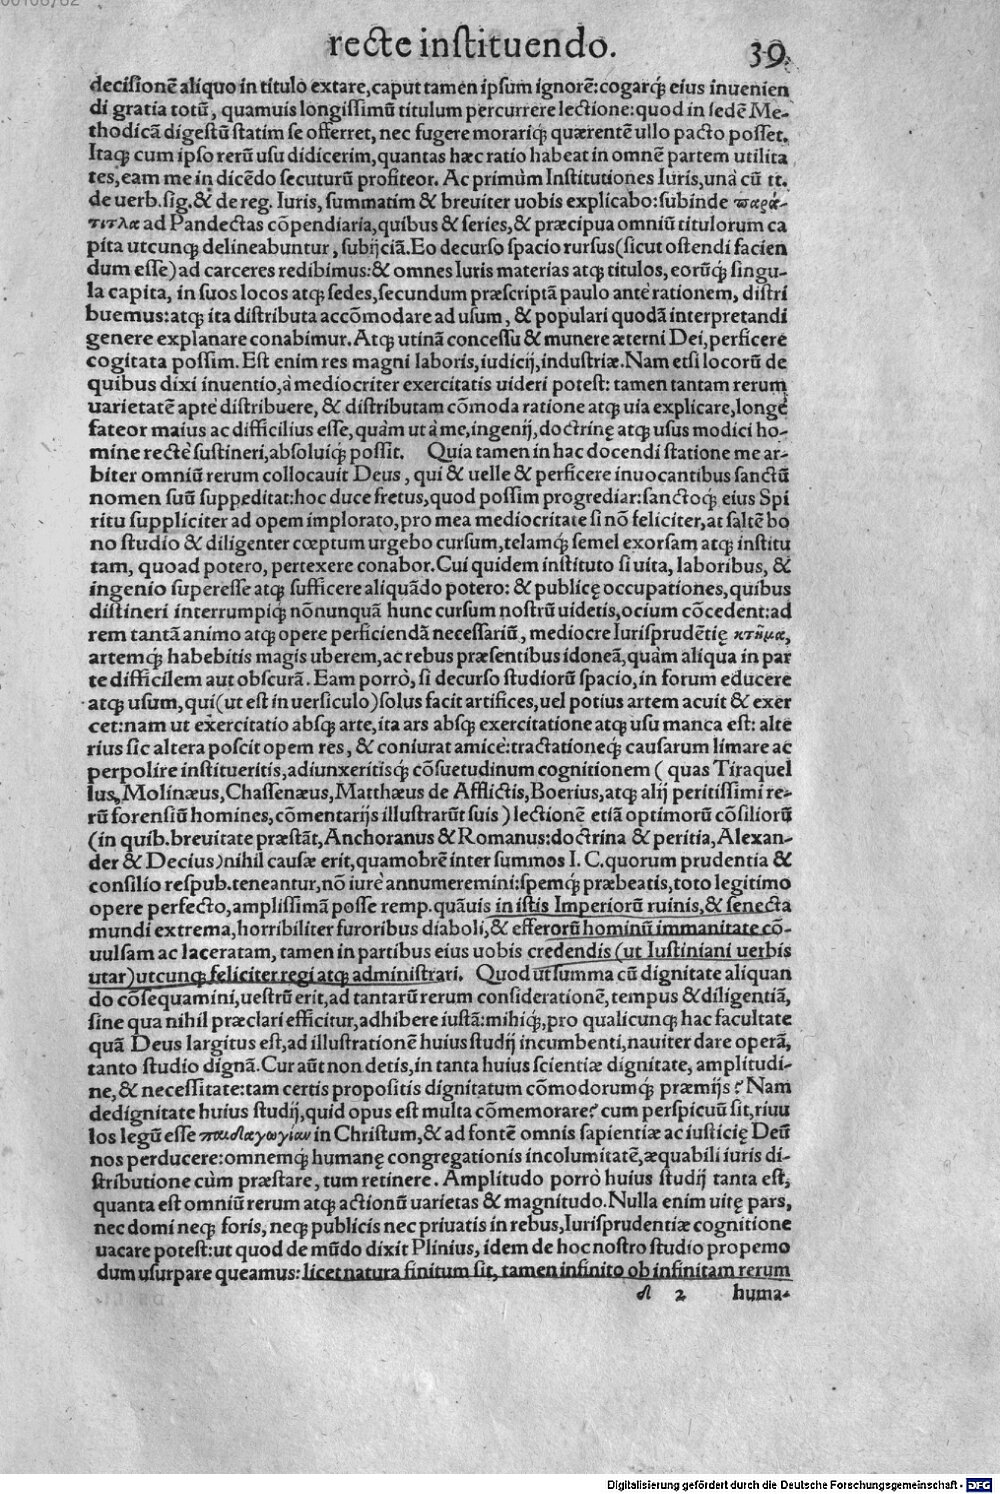 recte inſtituendo. 39.
deciſionē aliquo in titulo extare,caput tamen ipſum ignorē:cogarq́ꝫ eius inuenien
di gratia totū, quamuis longiſſimū titulum percurrere lectione:quod in ſedē Me-
thodicā digeſtū ſtatim ſe offerret, nec fugere morariq́ꝫ quærentē ullo pacto poſſet.
Itaqꝫ cum ipſo rerū uſu didicerim,quantas hæc ratio habeat in omnē partem utilita
tes,eam me in dicēdo ſecuturū profiteor. Ac primùm Inſtitutiones Iuris,unà cū tt.
de uerb.ſig.& de reg. Iuris, ſummatim & breuiter uobis explicabo:ſubinde παρά-
τιτλα ad Pandectas cōpendiaria,quibus & ſeries,& præcipua omniū titulorum ca
pita utcunqꝫ delineabuntur, ſubijciā.Eo decurſo ſpacio rurſus(ſicut oſtendi facien
dum eſſe)ad carceres redibimus:& omnes Iuris materias atqꝫ titulos, eorūq́ꝫ ſingu-
la capita, in ſuos locos atqꝫ ſedes,ſecundum præſcriptā paulo antè rationem, diſtri
buemus:atqꝫ ita diſtributa accōmodare ad uſum, & populari quodā interpretandi
genere explanare conabimur. Atqꝫ utinā conceſſu & munere æterni Dei,perficere
cogitata poſſim. Eſt enim res magni laboris,iudicij,induſtriæ. Nam etſi locorū de
quibus dixi inuentio,à mediocriter exercitatis uideri poteſt: tamen tantam rerum
uarietatē aptè diſtribuere, & diſtributam cōmoda ratione atqꝫ uia explicare,longè
fateor maius ac difficilius eſſe, quàm ut à me,ingenij,doctrinę atqꝫ uſus modici ho-
mine rectè ſuſtineri,abſoluiq́ꝫ poſſit. Quia tamen in hac docendi ſtatione me ar-
biter omniū rerum collocauit Deus, qui & uelle & perficere inuocantibus ſanctū
nomen ſuū ſuppeditat:hoc duce fretus,quod poſſim progrediar:ſanctoq́ꝫ eius Spi
ritu ſuppliciter ad opem implorato,pro mea mediocritate ſi nō feliciter,at ſaltē bo
no ſtudio & diligenter cœptum urgebo curſum,telamq́ꝫ ſemel exorſam atqꝫ inſtitu
tam, quoad potero, pertexere conabor.Cui quidem inſtituto ſi uita, laboribus, &
ingenio ſupereſſe atqꝫ ſufficere aliquādo potero: & publicę occupationes, quibus
diſtineri interrumpiq́ꝫ nōnunquā hunc curſum noſtrū uidetis,ocium cōcedent:ad
rem tantā animo atqꝫ opere perficiendā neceſſariū, mediocre Iuriſprudētię κτῆμα,
artemq́ꝫ habebitis magis uberem,ac rebus præſentibus idoneā,quàm aliqua in par
te difficilem aut obſcurā. Eam porrò, ſi decurſo ſtudiorū ſpacio,in forum educere
atqꝫ uſum,qui(ut eſt in uerſiculo)ſolus facit artifices,uel potius artem acuit & exer
cet:nam ut exercitatio abſqꝫ arte,ita ars abſqꝫ exercitatione atqꝫ uſu manca eſt: alte
rius ſic altera poſcit opem res, & coniurat amicè:tractationeq́ꝫ cauſarum limare ac
perpolire inſtitueritis,adiunxeritisq́ꝫ cōſuetudinum cognitionem ( quas Tiraquel
lus, Molinæus,Chaſſenæus, Matthæus de Afflictis,Boerius,atqꝫ alij peritiſſimi re-
rū forenſiū homines, cōmentarijs illuſtrarūt ſuis ) lectionē etiā optimorū cōſiliorū
(in quib.breuitate præſtāt, Anchoranus & Romanus:doctrina & peritia, Alexan-
der & Decius)nihil cauſæ erit,quamobrē inter ſummos I. C.quorum prudentia &
conſilio reſpub.teneantur,nō iurè annumeremini:ſpemq́ꝫ præbeatis,toto legitimo
opere perfecto,ampliſſimā poſſe remp.quāuis in iſtis Imperiorū ruinis,& ſenecta
mundi extrema,horribiliter furoribus diaboli,& efferorū hominū immanitate cō-
uulſam ac laceratam, tamen in partibus eius uobis credendis (ut Iuſtiniani uerbis
utar)utcunqꝫ feliciter regi atqꝫ adminiſtrari. Quod ut ſumma cū dignitate aliquan
do cōſequamini,ueſtrū erit,ad tantarū rerum conſiderationē, tempus & diligentiā,
ſine qua nihil præclari efficitur,adhibere iuſtā:mihiq́ꝫ,pro qualicunqꝫ hac facultate
quā Deus largitus eſt,ad illuſtrationē huius ſtudij incumbenti,nauiter dare operā,
tanto ſtudio dignā.Cur aūt non detis,in tanta huius ſcientiæ dignitate, amplitudi-
ne,& neceſſitate:tam certis propoſitis dignitatum cōmodorumq́ꝫ præmijs? Nam
dedignitate huius ſtudij,quid opus eſt multa cōmemorare? cum perſpicuū ſit,riuu
los legū eſſe παιδαγωγίαν in Chriſtum,& ad fontē omnis ſapientiæ ac iuſticię Deū
nos perducere:omnemq́ꝫ humanę congregationis incolumitatē,æquabili iuris di-
ſtributione cùm præſtare, tum retinere. Amplitudo porrò huius ſtudij tanta eſt,
quanta eſt omniū rerum atqꝫ actionū uarietas & magnitudo.Nulla enim uitę pars,
nec domi neqꝫ foris, neqꝫ publicis nec priuatis in rebus,Iuriſprudentiæ cognitione
uacare poteſt:ut quod de mūdo dixit Plinius, idem de hoc noſtro ſtudio propemo
dum uſurpare queamus:licet natura finitum ſit, tamen infinito ob infinitam rerum
d 2 huma-
Digitalisierung gefördert durch die Deutsche Forschungsgemeinschaft - DFG